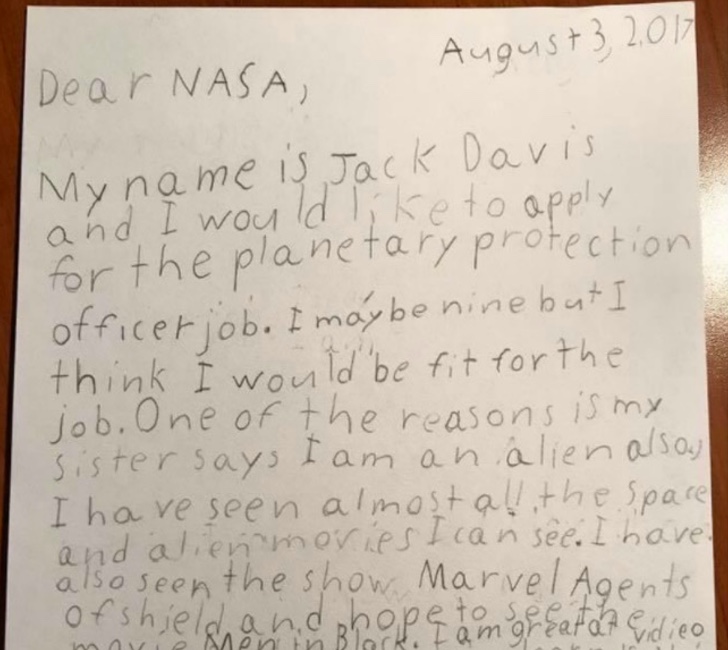 August 3, 2017
Dear NASA,
My name is Jack Davis
and I would like to apply
for the planetary protection
officer job. I maybe nine but I
think I would be fit for the
job. One of the reasons is my
sister says I am an alien also,
I have seen almost all the space
and alien movies I can see. I have
also seen the show Marvel Agents
of shield and hope to see the
movie Men in Black. I am great at vidieo